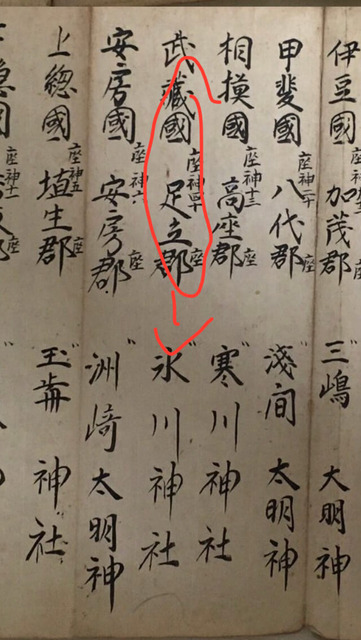 伊豆國 加茂郡座 三嶋大明神
甲斐國 座神二十 八代郡座 淺間太明神
相摸國 座神十三 高座郡座 寒川神社
武藏國 座神 足立郡座 氷川神社
安房國 座神六 安房郡座 洲崎太明神
上總國 座神五 埴生郡座 玉歬神社